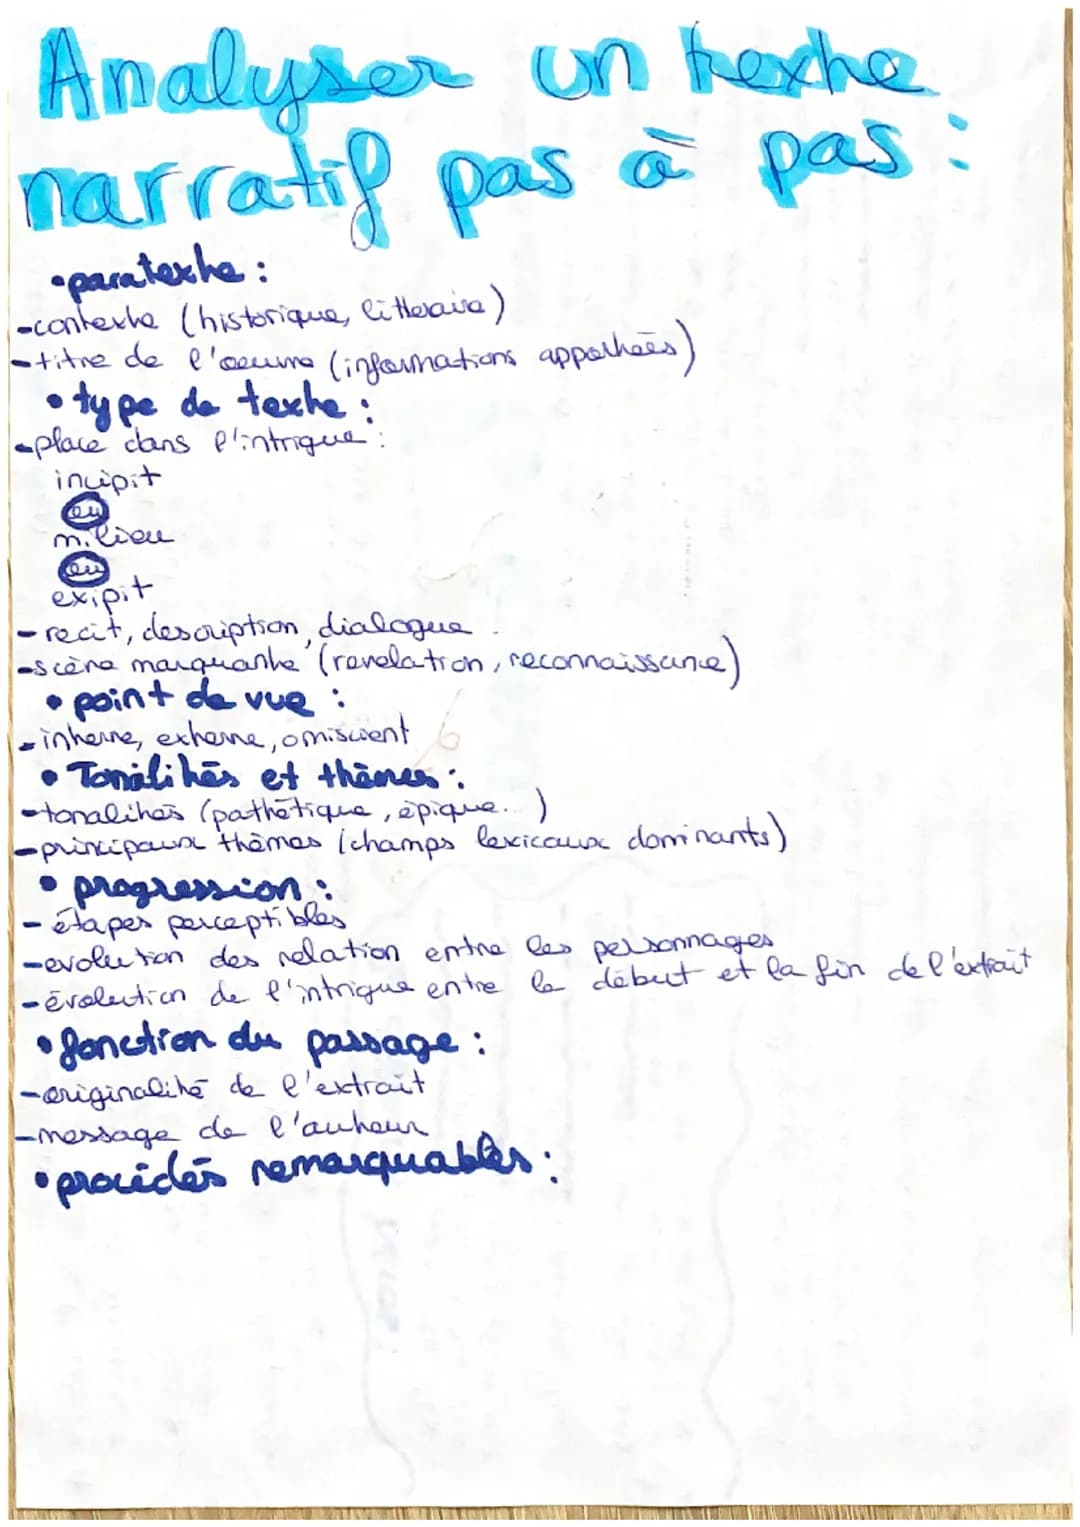 Analyser un texte
narratif pas à pas :
•paratexte :
-contexte (historique, litteraire)
-titre de l'oeuvre (informations apportées)
•type de texte :
-place dans l'intrigue :
incipit
ou
milieu
ou
exipit
-recit, description, dialogue
-scène marquante (revelation, reconnaissance)
•point de vue :
-interne, externe, omiscient
•Tonalités et thèmes :
-tonalités (pathétique, épique...)
-principaux thèmes (champs lexicaux dominants)
•progression :
-étapes perceptibles
-evolution des relation entre les personnages
-évolution de l'intrigue entre le début et la fin de l'extrait
•fonction du passage :
-originalité de l'extrait
-message de l'auteur
•procédés remarquables :